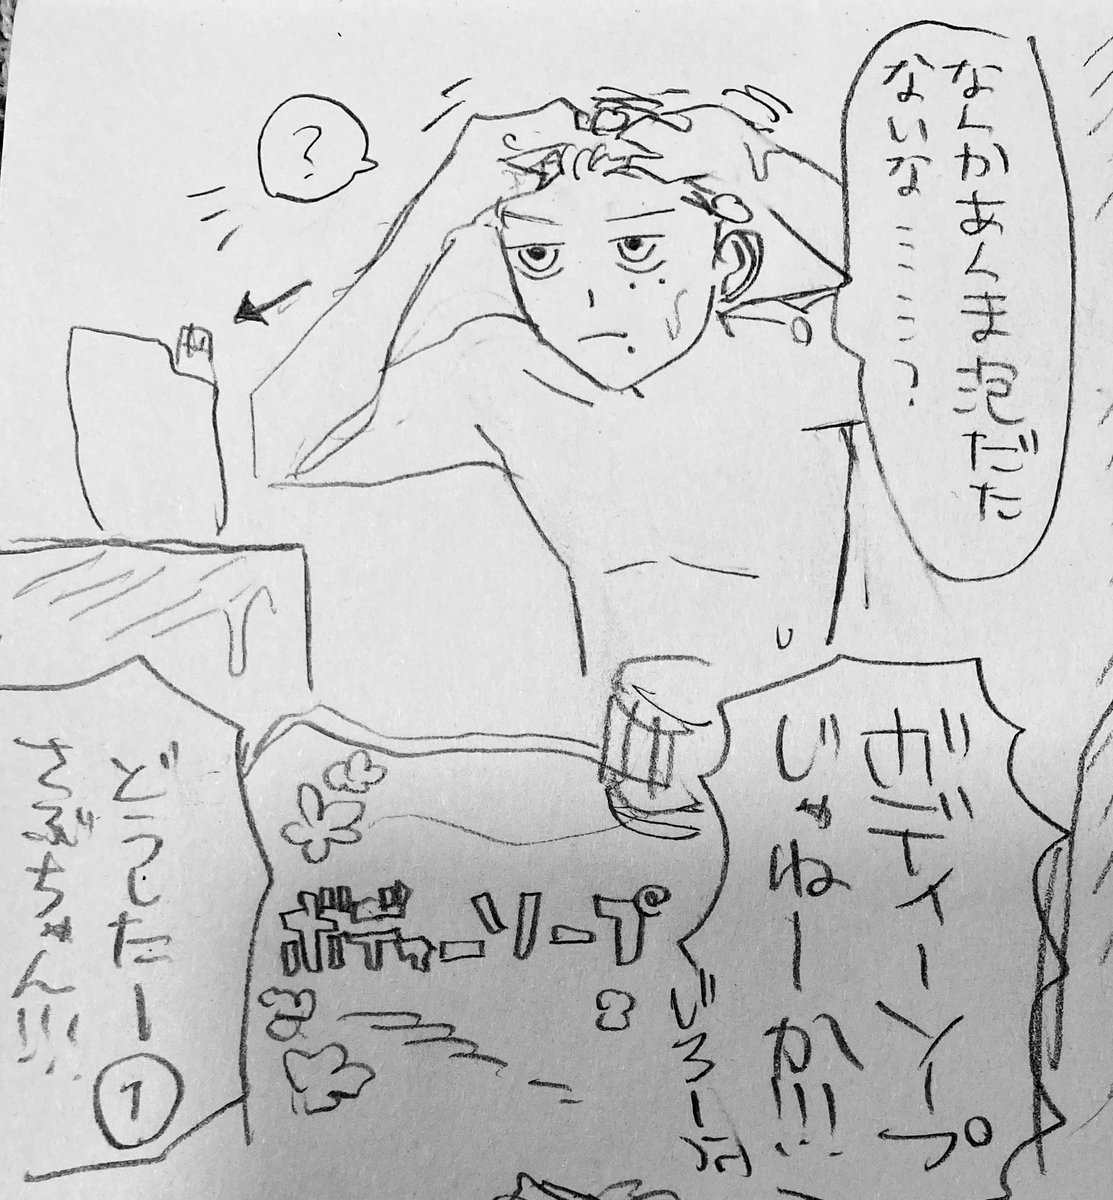 なんかあんま泡だた
ないな……?
?
ボディーソープ
じゃねーか!!!
ボディーソープ
どうしたー
さぶちゃん!!!
1